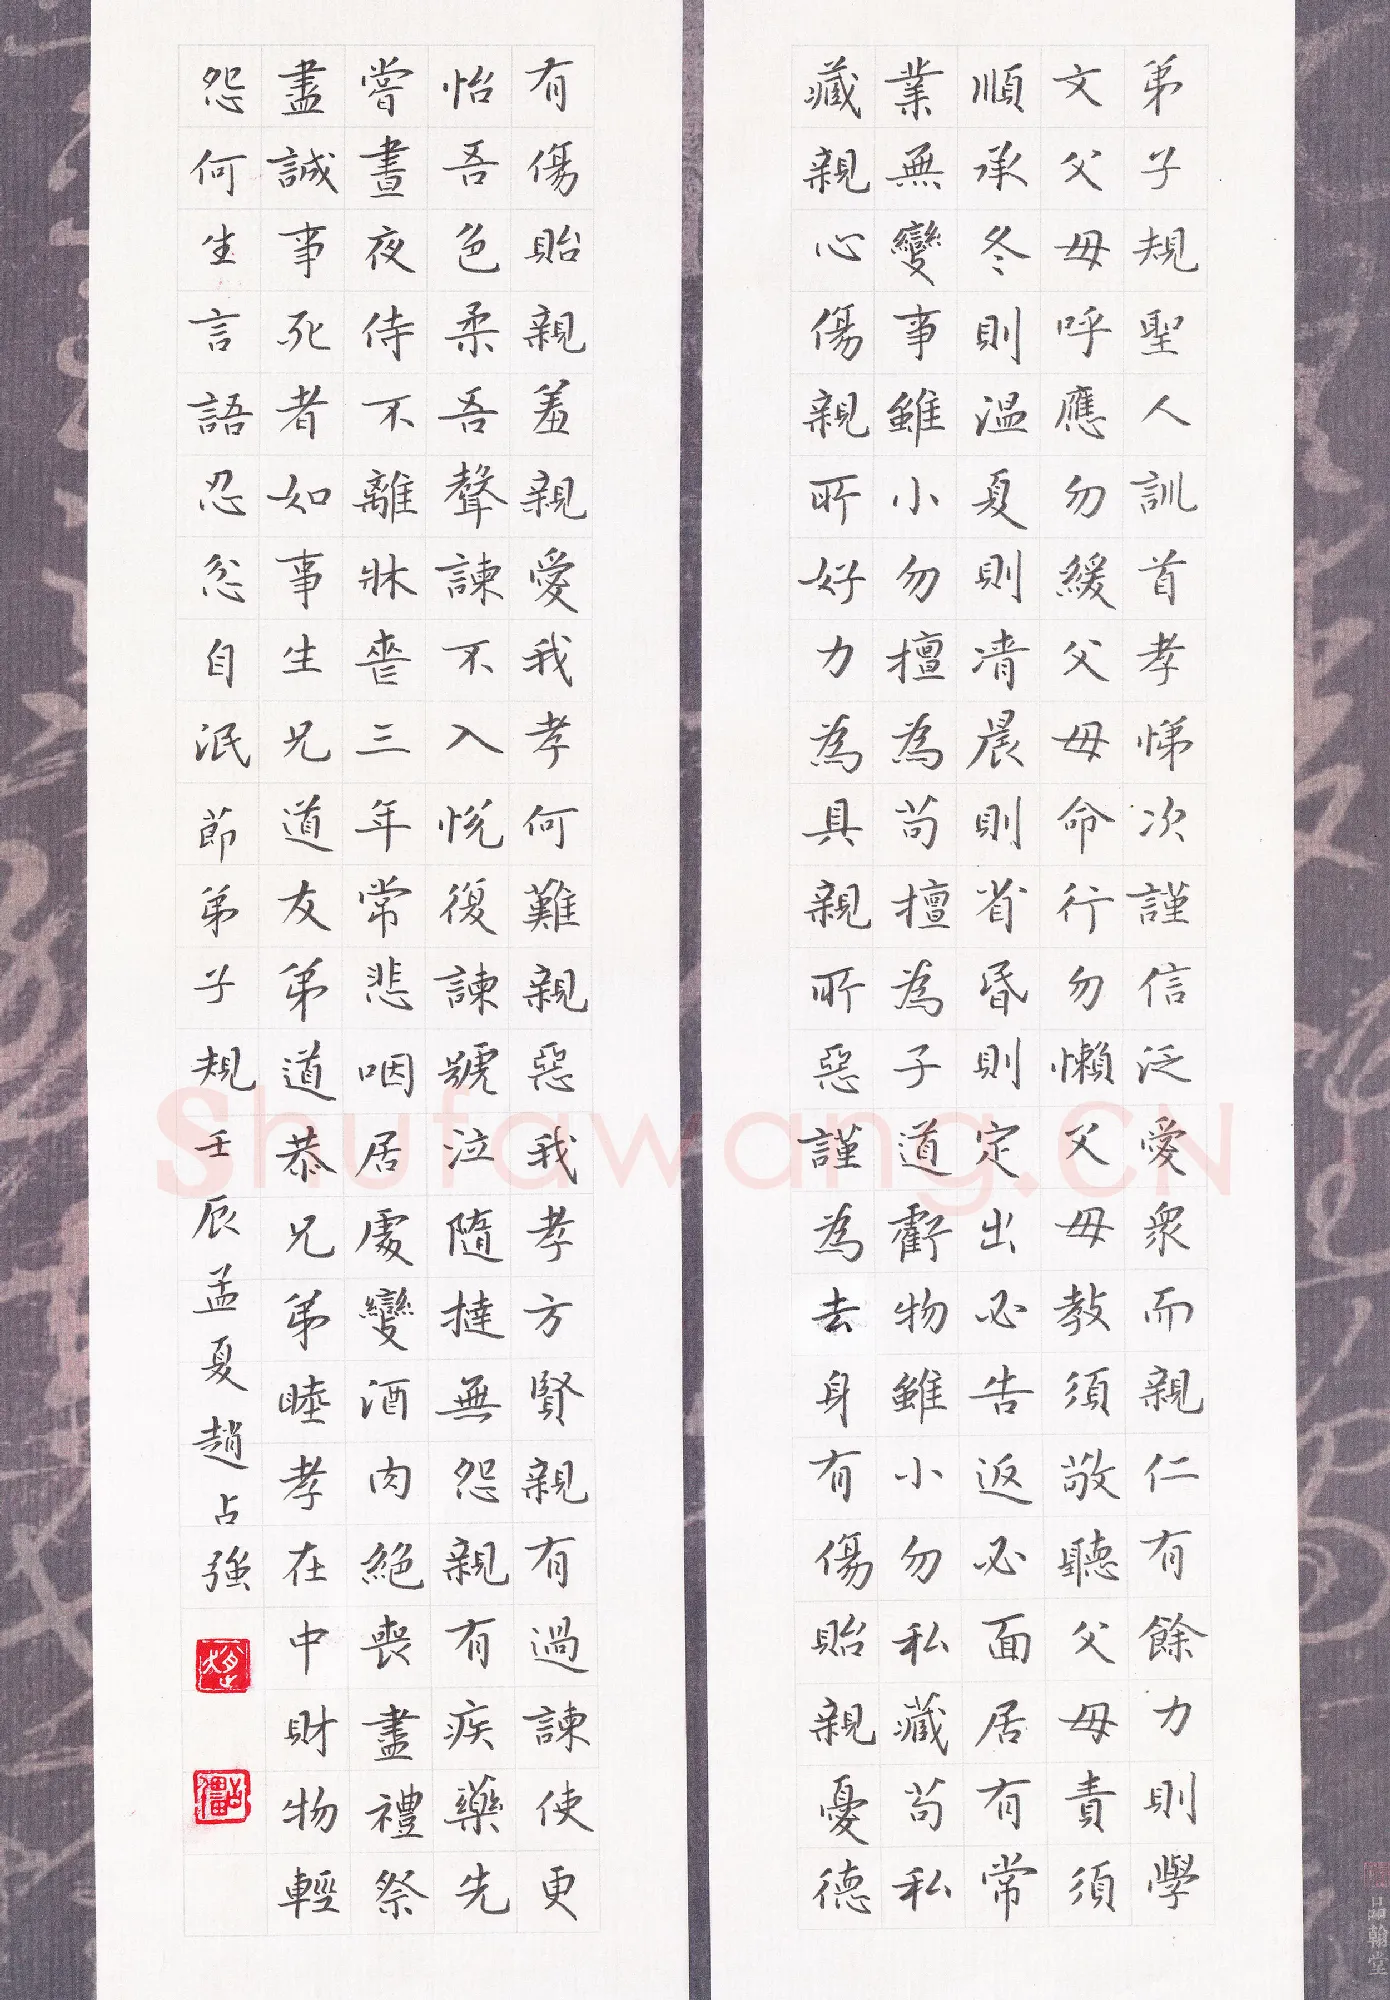 弟子規聖人訓首孝悌次謹信泛愛衆而親仁有餘力則學
文父母呼應勿緩父母命行勿懶父母教須敬聽父母責須
順承冬則溫夏則凊晨則省昏則定出必告返必面居有常
業無變事雖小勿擅為苟擅為子道虧物雖小勿私藏苟私
藏親心傷親所好力為具親所惡謹為去身有傷貽親憂德
有傷貽親羞親愛我孝何難親惡我孝方賢親有過諫使更
怡吾色柔吾聲諫不入悅復諫號泣隨撻無怨親有疾藥先
嘗晝夜侍不離牀喪三年常悲咽居處變酒肉絕喪盡禮祭
盡誠事死者如事生兄道友弟道恭兄弟睦孝在中財物輕
怨何生言語忍忿自泯節弟子規壬辰孟夏趙占強
Shufawang.CN
品翰堂